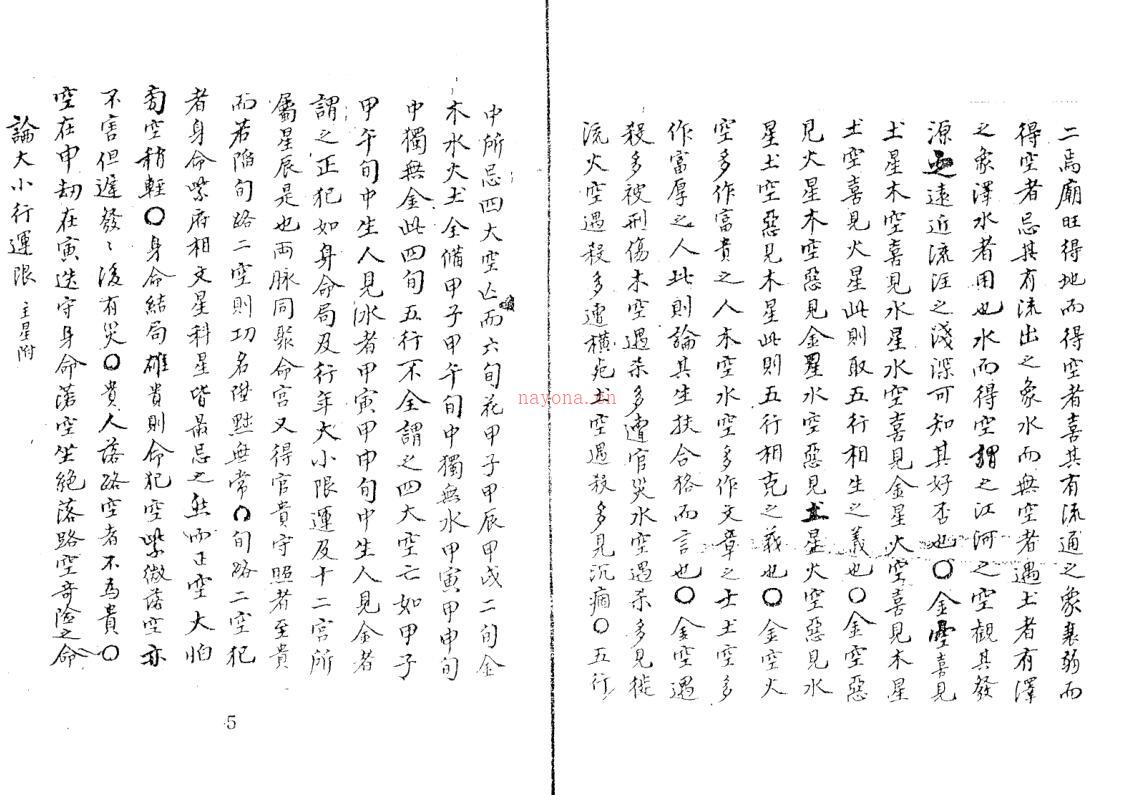 二焉廟旺得地而得空者喜其有流通之象衰弱而
得空者忌其有流出之象水而無空者遇土者有澤
之象澤水者用也水而得空謂之江河之空觀其發
源遠近流注之淺深可知其好否也〇金空喜見
土星木空喜見水星水空喜見金星火空喜見木星
土空喜見火星此則取五行相生之義也〇金空惡
見火星木空惡見金星水空惡見土星火空惡見水
星土空惡見木星此則五行相克之義也〇金空火
空多作富貴之人木空水空多作文章之士土空多
作富厚之人此則論其生扶合格而言也〇金空遇
殺多被刑傷木空遇杀多遭官災水空遇杀多見徙
流火空遇殺多遭橫死土空遇殺多見沉痼〇五行
中所忌四大空亡而六旬花甲子甲辰甲戌二旬金
木水火土全備甲子甲午旬中獨無水甲寅甲申旬
中獨無金此四旬五行不全謂之四大空亡如甲子
甲午旬中生人見水者甲寅甲申旬中生人見金者
謂之正犯如身命局及行年大小限運及十二宮所
屬星辰是也兩脉同聚命宮又得官貴守照者至貴
而若陷旬路二空則功名陞黜無常〇旬路二空犯
者身命紫府相文星科星皆最忌之然而正空大怕
旁空稍輕〇身命結局雄貴則命犯空紫微落空亦
不害但遲發〻後有災〇貴人落路空者不為貴〇
空在申劫在寅迭守身命落空坐絕落路空奇險之命
論大小行運限 主星附
5
nayona.cn